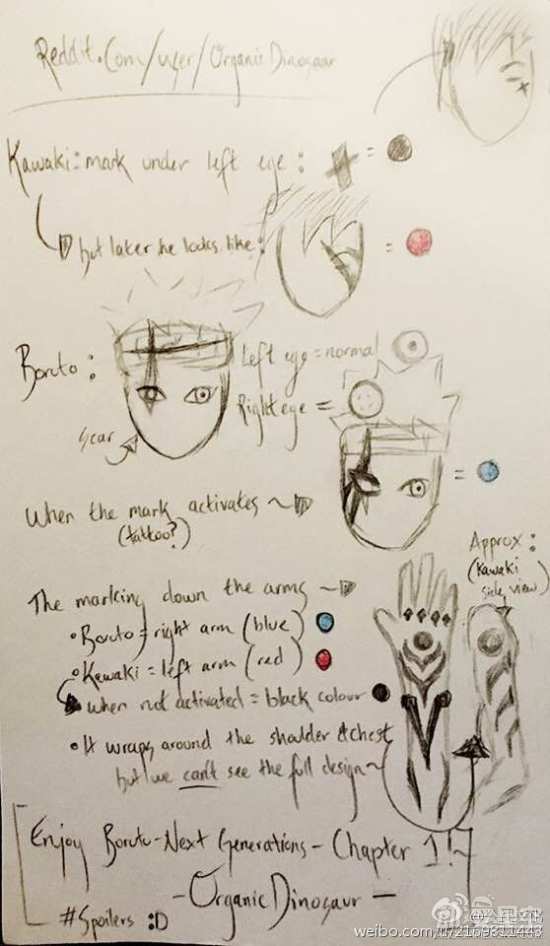 Reddit.Com/user/OrganicDinosaur
Kawaki: mark under left eye: =
but later he looks like: =
Boruto:
Left eye = normal
Right eye =
scar
=
When the mark activates
(tattoo?)
Approx:
(Kawaki
side view)
The marking down the arms
• Boruto = right arm (blue)
• Kawaki = left arm (red)
when not activated = black colour
• It wraps around the shoulder & chest
but we can't see the full design~
Enjoy Boruto-Next Generations- Chapter 1!~
-OrganicDinosaur-
#Spoilers :D